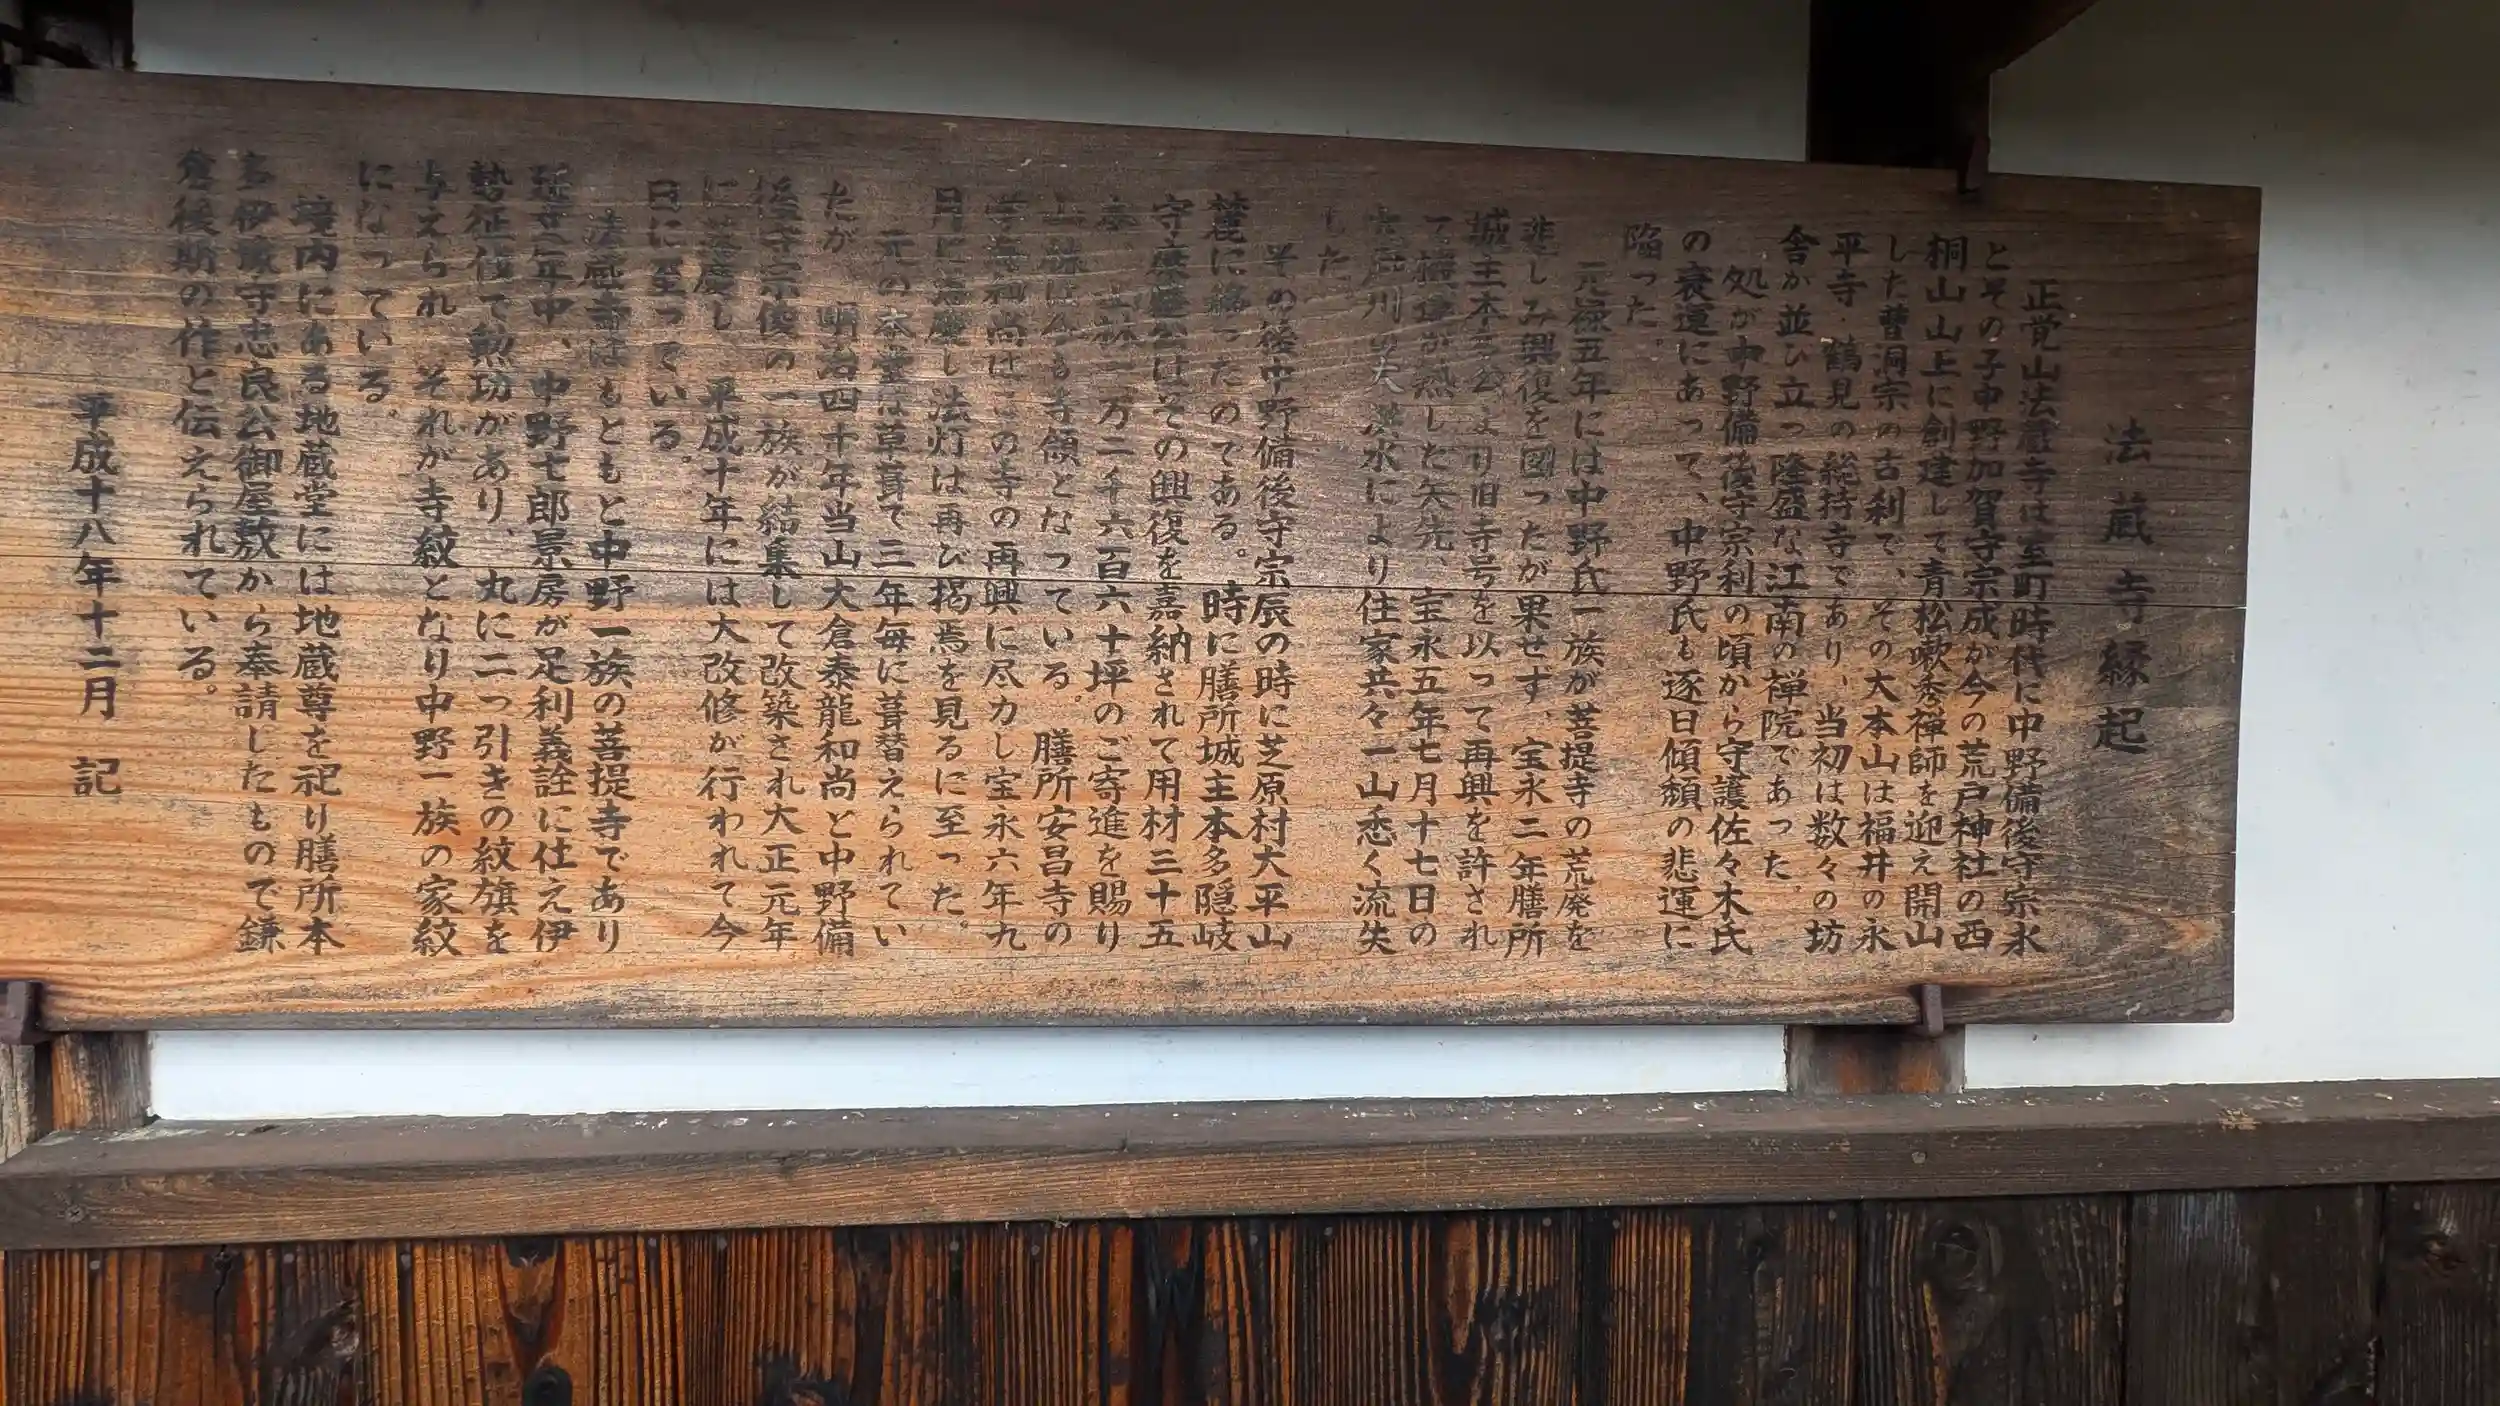 法蔵寺縁起
正覚山法蔵寺は室町時代に中野備後守宗永
とその子中野加賀守宗成が今の荒戸神社の西
桐山山上に創建して青松嗽秀禅師を迎え開山
した曹洞宗の古刹で、その大本山は福井の永
平寺・鶴見の総持寺であり、当初は数々の坊
舎が並び立つ隆盛な江南の禅院であった。
処が中野備後守宗利の頃から守護佐々木氏
の衰運にあって、中野氏も逐日傾頽の悲運に
陥った。
元禄五年には中野氏一族が菩提寺の荒廃を
悲しみ興復を図ったが果せず、宝永二年膳所
城主本多公より旧寺号を以って再興を許され
て機運が熟した矢先、宝永五年七月十七日の
川の大洪水により住家共々一山悉く流失
した
その後中野備後守宗辰の時に芝原村大平山
麓に移ったのである。時に膳所城主本多隠岐
守康慶公はその興復を嘉納されて用材三十五
本、山林一万二千六百六十坪のご寄進を賜り
山林は今も寺領となっている。膳所安昌寺の
和尚はこの寺の再興に尽力し宝永六年九
月に落慶し法灯は再び掲焉を見るに至った。
元の本堂は草葺で三年毎に葺替えられてい
たが 明治四十年当山大倉泰龍和尚と中野備
後守宗俊の一族が結集して改築され大正元年
に落慶し 平成十年には大改修が行われて今
日に至っている。
法蔵寺はもともと中野一族の菩提寺であり
延文年中、中野七郎景房が足利義詮に仕え伊
勢征伐で勲功があり、丸に二つ引きの紋旗を
与えられ それが寺紋となり中野一族の家紋
になっている。
境内にある地蔵堂には地蔵尊を祀り膳所本
多伊豫守忠良公御屋敷から奉請したもので鎌
倉後期の作と伝えられている。
平成十八年十二月 記